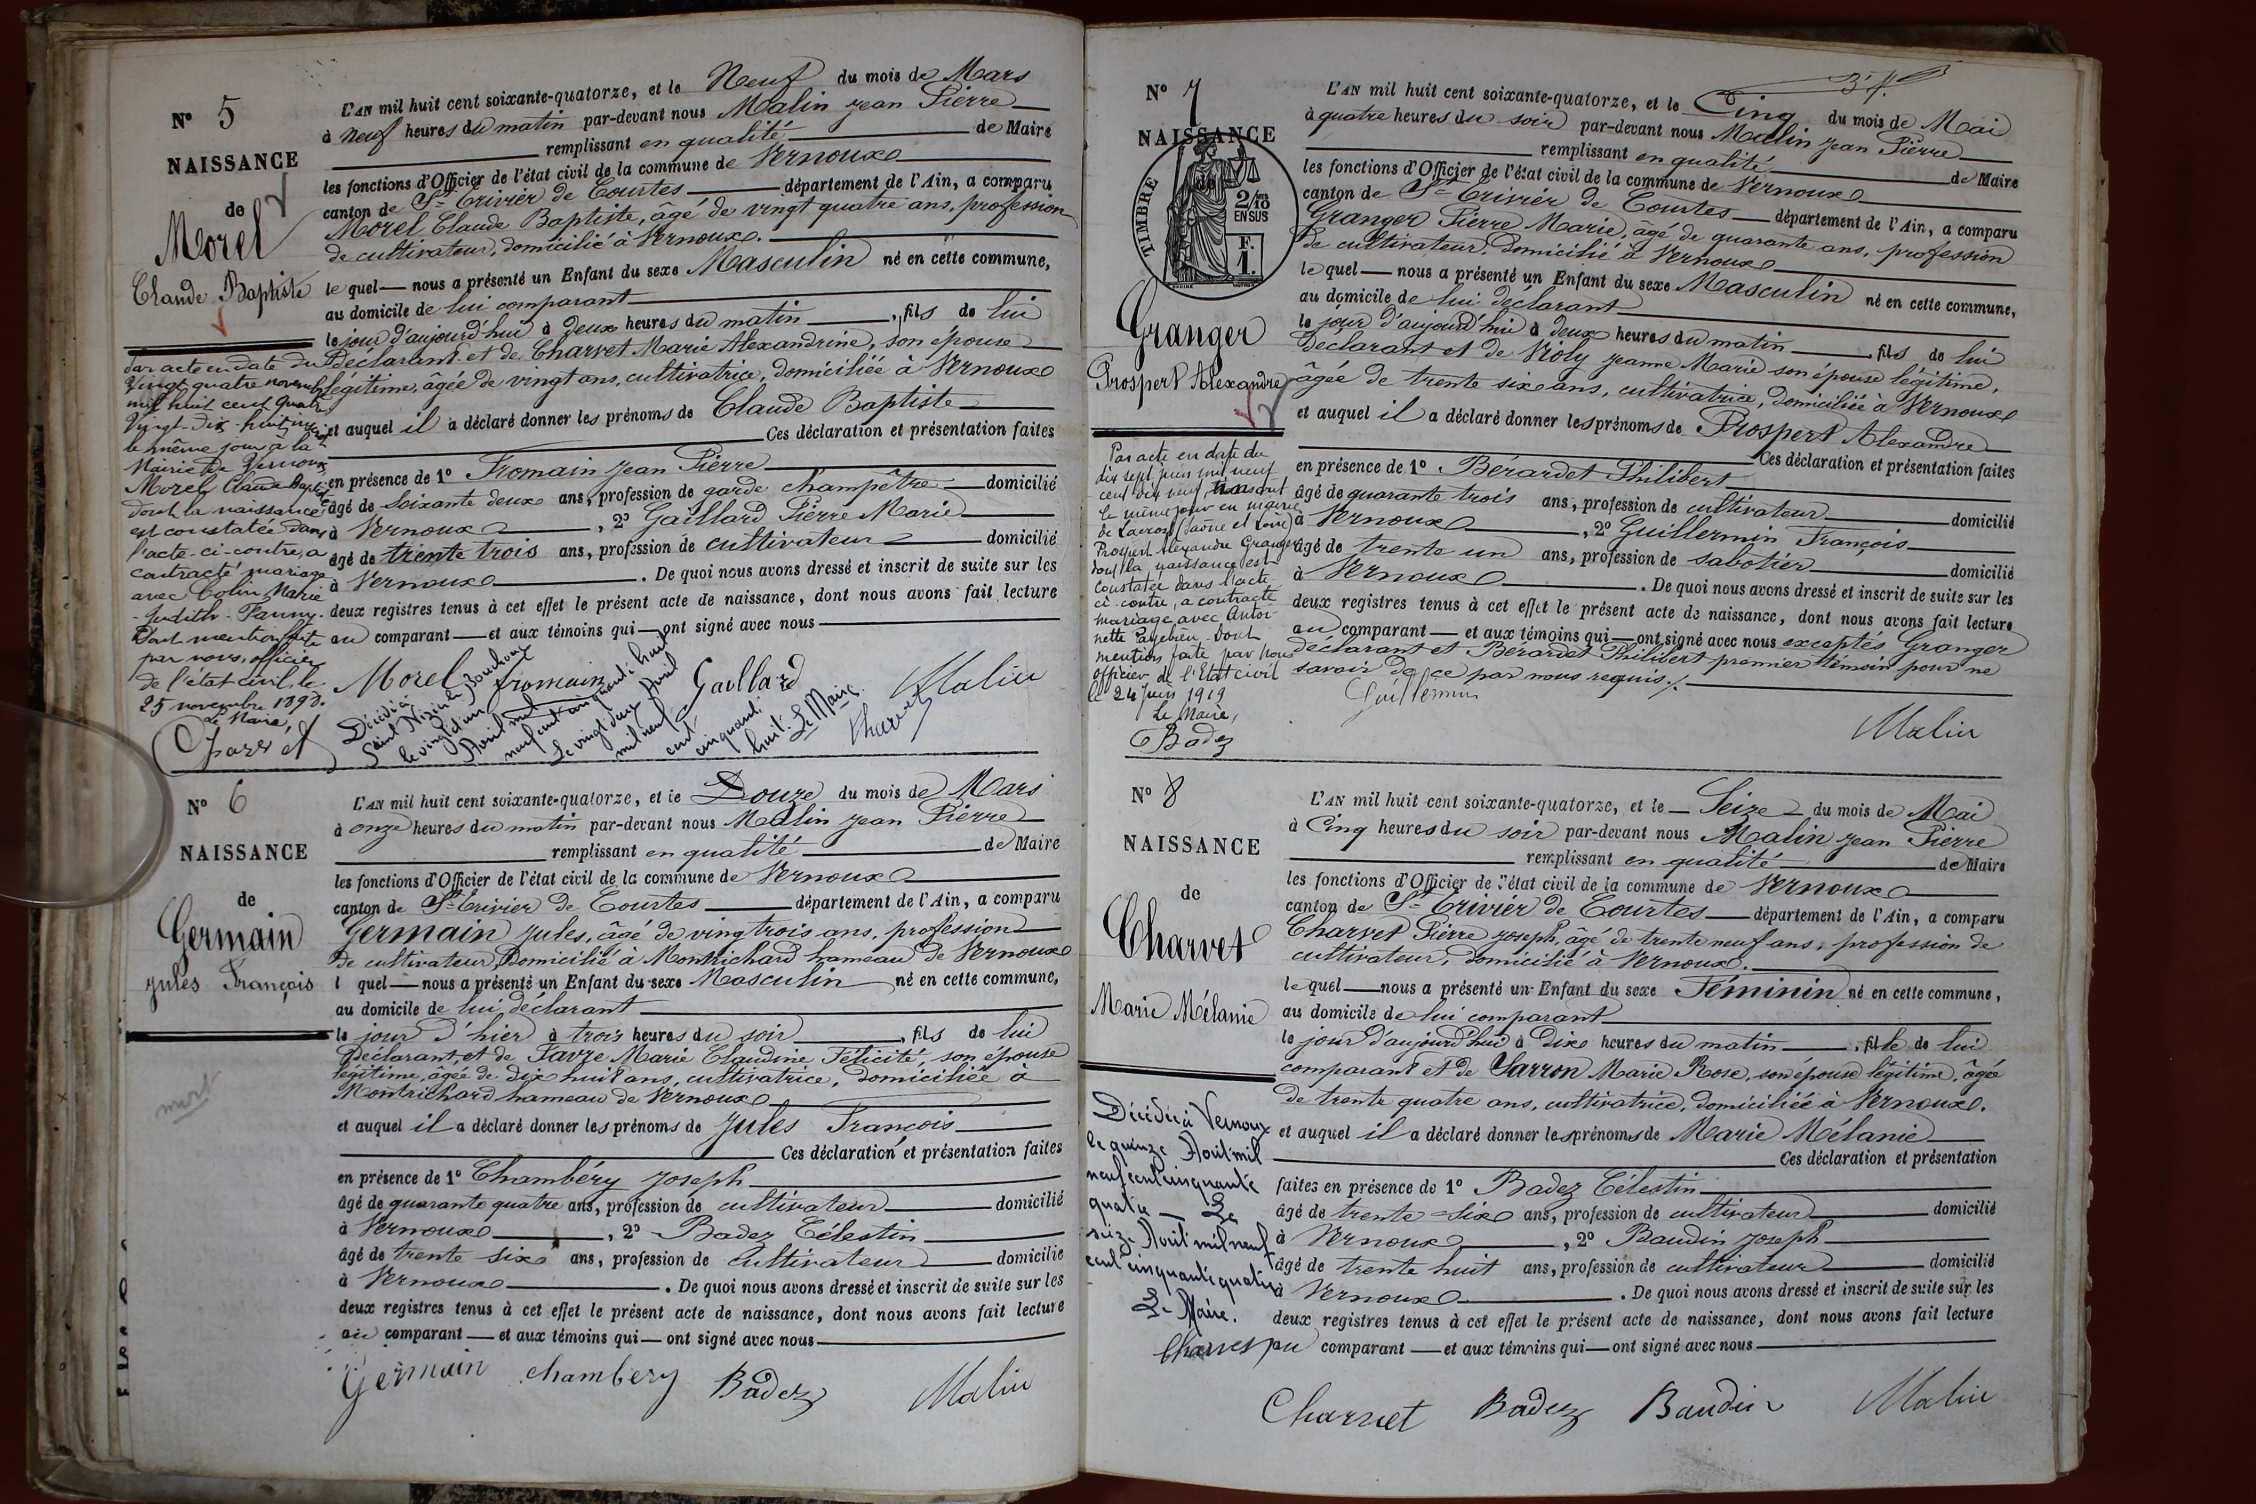 N° 5
NAISSANCE
de
Morel
Claude Baptiste
L'AN mil huit cent soixante-quatorze, et le Neuf du mois de Mars
à Neuf heures du matin par-devant nous Malin Jean Pierre
remplissant en qualité de Maire
les fonctions d'Officier de l'état civil de la commune de Vernoux
canton de St Trivier de Courtes département de l'Ain, a comparu
Morel Claude Baptiste, âgé de vingt quatre ans, profession
de cultivateur, domicilié à Vernoux.
le quel nous a présenté un Enfant du sexe Masculin né en cette commune,
au domicile de lui comparant
le jour d'aujourd'hui à deux heures du matin, fils de lui
déclarant et de Charvet Marie Alexandrine, son épouse
légitime, âgée de vingt ans, cultivatrice, domiciliée à Vernoux
et auquel il a déclaré donner les prénoms de Claude Baptiste
Ces déclaration et présentation faites
en présence de 1° Fromain Jean Pierre
âgé de soixante deux ans, profession de garde champêtre domicilié
à Vernoux, 2° Gaillard Pierre Marie
âgé de trente trois ans, profession de cultivateur domicilié
à Vernoux. De quoi nous avons dressé et inscrit de suite sur les
deux registres tenus à cet effet le présent acte de naissance, dont nous avons fait lecture
au comparant et aux témoins qui ont signé avec nous
Morel Fromain Gaillard Malin
Par acte en date du
Vingt quatre novembre
mil huit cent quatre
Vingt-dix-huit
le même jour à la
Mairie de Vernoux
Morel Claude Baptiste
dont la naissance
est constatée dans
l'acte ci-contre, a
contracté mariage
avec Colin Marie
Judith-Fanny.
Dont mention faite
par nous, officier
de l'état civil, le
25 novembre 1898.
Le Maire,
Décédé à
Saint Nizier le Bouchoux
le vingt un
Avril mil
neuf cent cinquante huit
Le vingt deux Avril
mil neuf
cent
cinquante
huit. Le Maire
Charvet
N° 6
NAISSANCE
de
Germain
Jules François
mort
L'AN mil huit cent soixante-quatorze, et le Douze du mois de Mars
à onze heures du matin par-devant nous Malin Jean Pierre
remplissant en qualité de Maire
les fonctions d'Officier de l'état civil de la commune de Vernoux
canton de St Trivier de Courtes département de l'Ain, a comparu
Germain Jules, âgé de vingt trois ans, profession
de cultivateur, Domicilié à Montrichard hameau de Vernoux
l quel nous a présenté un Enfant du sexe Masculin né en cette commune,
au domicile de lui déclarant
le jour d'hier à trois heures du soir, fils de lui
déclarant et de Favre Marie Claudine Félicité, son épouse
légitime, âgée de dix huit ans, cultivatrice, domiciliée à
Montrichard hameau de Vernoux
et auquel il a déclaré donner les prénoms de Jules François
Ces déclaration et présentation faites
en présence de 1° Chambéry Joseph
âgé de quarante quatre ans, profession de cultivateur domicilié
à Vernoux, 2° Badez Célestin
âgé de trente six ans, profession de Cultivateur domicilié
à Vernoux. De quoi nous avons dressé et inscrit de suite sur les
deux registres tenus à cet effet le présent acte de naissance, dont nous avons fait lecture
au comparant et aux témoins qui ont signé avec nous
Germain chambery Badez Malin
N° 7
NAISSANCE
de
TIMBRE
2/10
EN SUS
F.
1.
Granger
Prospert Alexandre
L'AN mil huit cent soixante-quatorze, et le Cinq du mois de Mai
à quatre heures du soir par-devant nous Malin Jean Pierre
remplissant en qualité de Maire
les fonctions d'Officier de l'état civil de la commune de Vernoux
canton de St Trivier de Courtes département de l'Ain, a comparu
Granger Pierre Marie, âgé de quarante ans, profession
de cultivateur, domicilié à Vernoux
le quel nous a présenté un Enfant du sexe Masculin né en cette commune,
au domicile de lui déclarant
le jour d'aujourd'hui à deux heures du matin, fils de lui
déclarant et de Violy Jeanne Marie son épouse légitime,
âgée de trente six ans, cultivatrice, domiciliée à Vernoux
et auquel il a déclaré donner les prénoms de Prospert Alexandre
Ces déclaration et présentation faites
en présence de 1° Bérardet Philibert
âgé de quarante trois ans, profession de cultivateur domicilié
à Vernoux, 2° Guillermin François
âgé de trente un ans, profession de sabotier domicilié
à Vernoux. De quoi nous avons dressé et inscrit de suite sur les
deux registres tenus à cet effet le présent acte de naissance, dont nous avons fait lecture
au comparant et aux témoins qui ont signé avec nous exceptés Granger
déclarant et Bérardet Philibert premier témoin pour ne
savoir de ce par nous requis./.
Guillermin
Malin
Par acte en date du
dix sept juin mil neuf
cent dix neuf
le même jour en mairie
de Lacrost (Saône et Loire)
Prospert Alexandre Granger
dont la naissance est
constatée dans l'acte
ci-contre, a contracté
mariage avec Antoi-
nette Pageben. Dont
mention faite par nous
officier de l'Etat civil
le 24 Juin 1919
Le Maire,
Badez
N° 8
NAISSANCE
de
Charvet
Marie Mélanie
L'AN mil huit cent soixante-quatorze, et le Seize du mois de Mai
à Cinq heures du soir par-devant nous Malin Jean Pierre
remplissant en qualité de Maire
les fonctions d'Officier de l'état civil de la commune de Vernoux
canton de St Trivier de Courtes département de l'Ain, a comparu
Charvet Pierre Joseph, âgé de trente neuf ans, profession de
cultivateur, domicilié à Vernoux.
le quel nous a présenté un Enfant du sexe Féminin né en cette commune,
au domicile de lui comparant
le jour d'aujourd'hui à Dix heures du matin, fille de lui
comparant et de Sarron Marie Rose, son épouse légitime, âgée
de trente quatre ans, cultivatrice, domiciliée à Vernoux.
et auquel il a déclaré donner les prénoms de Marie Mélanie
Ces déclaration et présentation
faites en présence de 1° Badez Célestin
âgé de trente-six ans, profession de cultivateur domicilié
à Vernoux, 2° Baudin Joseph
âgé de trente huit ans, profession de cultivateur domicilié
à Vernoux. De quoi nous avons dressé et inscrit de suite sur les
deux registres tenus à cet effet le présent acte de naissance, dont nous avons fait lecture
au comparant et aux témoins qui ont signé avec nous
Charvet Badez Baudin Malin
Décédée à Vernoux
le quinze Avril mil
neuf cent cinquante
quatre Le
seize Avril mil neuf
cent cinquante quatre
Le Maire.
Charvet